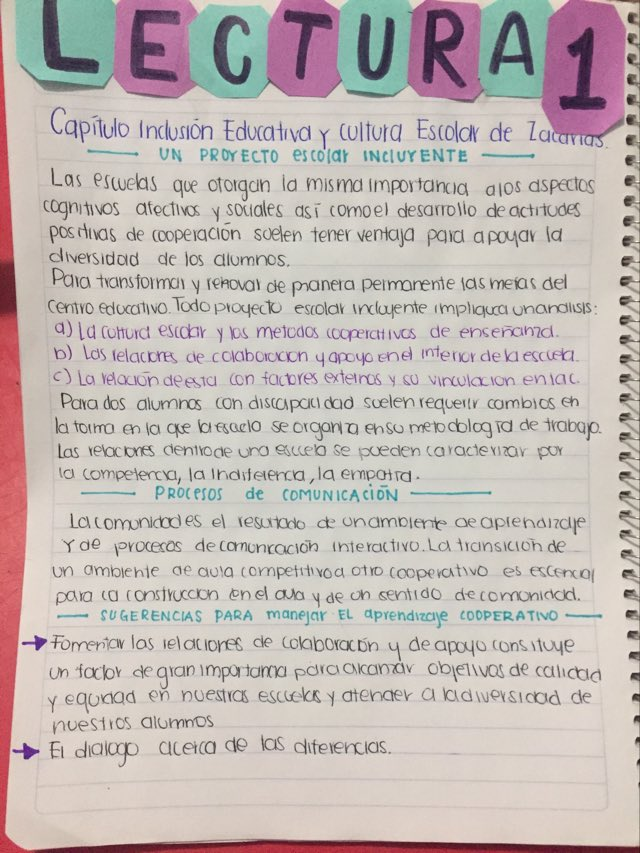 LECTURA 1
Capítulo Inclusión Educativa y cultura Escolar de Zacarías.
UN PROYECTO escolar INCLUYENTE
Las escuelas que otorgan la misma importancia a los aspectos
cognitivos afectivos y sociales así como el desarrollo de actitudes
positivas de cooperación suelen tener ventaja para apoyar la
diversidad de los alumnos.
Para transformar y renovar de manera permanente las metas del
centro educativo. Todo proyecto escolar incluyente implica un analisis:
a) La cultura escolar y los metodos cooperativos de enseñanza.
b) Las relaciones de colaboracion y apoyo en el interior de la escuela.
c) La relación de esta con factores externos y su vinculacion en la c.
Para dos alumnos con discapacidad suelen requerir cambios en
la forma en la que la escuela se organiza en su metodología de trabajo.
Las relaciones dentro de una escuela se pueden caracterizar por
la competencia, la indiferencia, la empatía.
PROCESOS de COMUNICACIÓN
La comunidad es el resultado de un ambiente de aprendizaje
y de procesos de comunicación interactivo. La transición de
un ambiente de aula competitivo a otro cooperativo es escencial
para la construccion en el aula y de un sentido de comunidad.
SUGERENCIAS PARA manejar EL aprendizaje COOPERATIVO
→ Fomentar las relaciones de colaboración y de apoyo constituye
un factor de gran importancia para alcanzar objetivos de calidad
y equidad en nuestras escuelas y atender a la diversidad de
nuestros alumnos
→ El dialogo acerca de las diferencias.